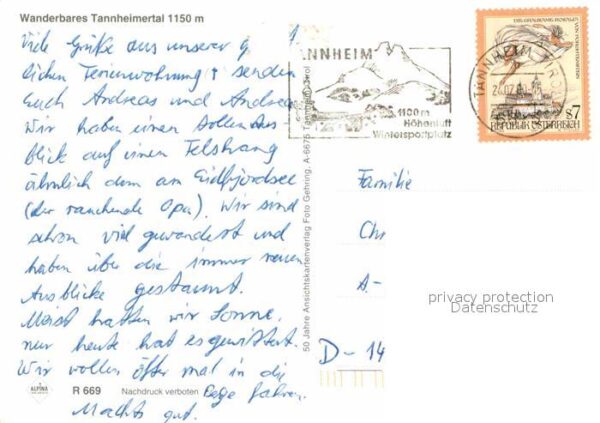 Wanderbares Tannheimertal 1150 m
Viele Grüße aus unserer g
lichen Ferienwohnung senden
Euch Andreas und Andrea
Wir haben einen tollen Aus
blick auf einen Felshang
ähnlich dem am Eidfjordsee
(der rauchende Opa). Wir sind
schon viel gewandert und
haben über die immer neuen
Ausblicke gestaunt.
Meist hatten wir Sonne,
nur heute hat es gewittert.
Wir wollen öfter mal in die
Berge fahren.
Machts gut.
ALPINA
R 669
Nachdruck verboten
50 Jahre Ansichtskartenverlag Foto Gehring, A-6675 Tannheim/Tirol
ANNHEIM
1100 m
Höhenluft
Wintersportplatz
TANNHEIM, TIROL
s7
REPUBLIK ÖSTERREICH
Familie
Chr
A.-
D-14
privacy protection
Datenschutz